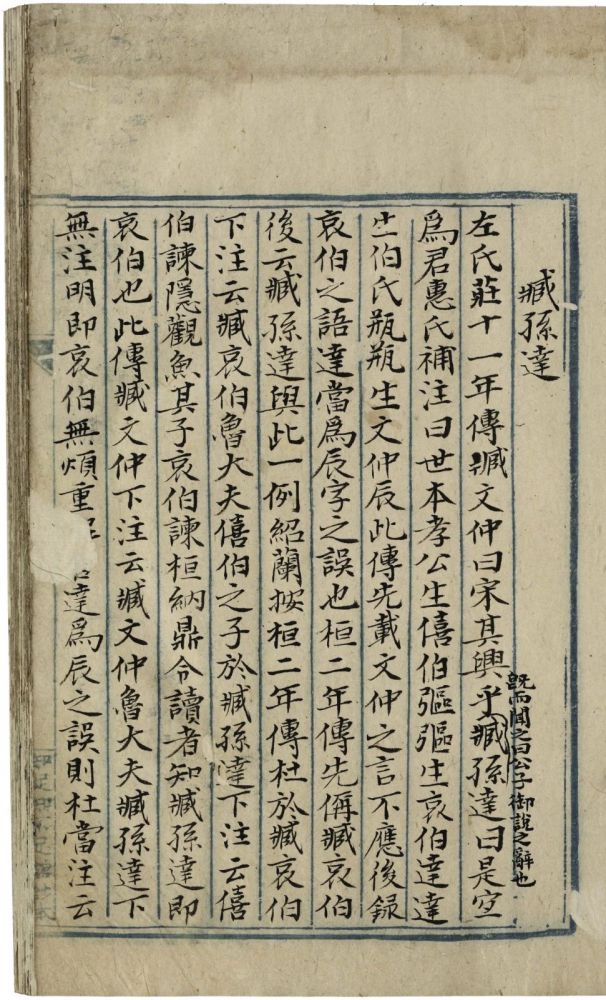 臧孫達
左氏莊十一年傳臧文仲曰宋其興乎臧孫達曰是空
既而聞之曰公子御說之辭也
爲君惠氏補注曰世本孝公生僖伯彄彄生哀伯達達
生伯氏瓶瓶生文仲辰此傳先載文仲之言不應後録
哀伯之語達當爲辰字之誤也桓二年傳先偁臧哀伯
後云臧孫達與此一例紹蘭按桓二年傳杜於臧哀伯
下注云臧哀伯魯大夫僖伯之子於臧孫達下注云僖
伯諫隱觀魚其子哀伯諫桓納鼎令讀者知臧孫達即
哀伯也此傳臧文仲下注云臧文仲魯大夫臧孫達下
無注明即哀伯無煩重達爲辰之誤則杜當注云